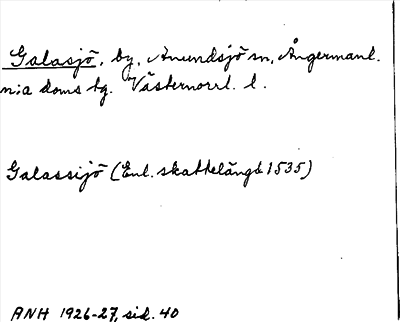 Galasjö, by, Anundsjö sn, Ångermanl.
n:a doms bg. Västernorrl. l.
Galassijö (Enl. skattelängd 1535)
ANH 1926-27, sid. 40